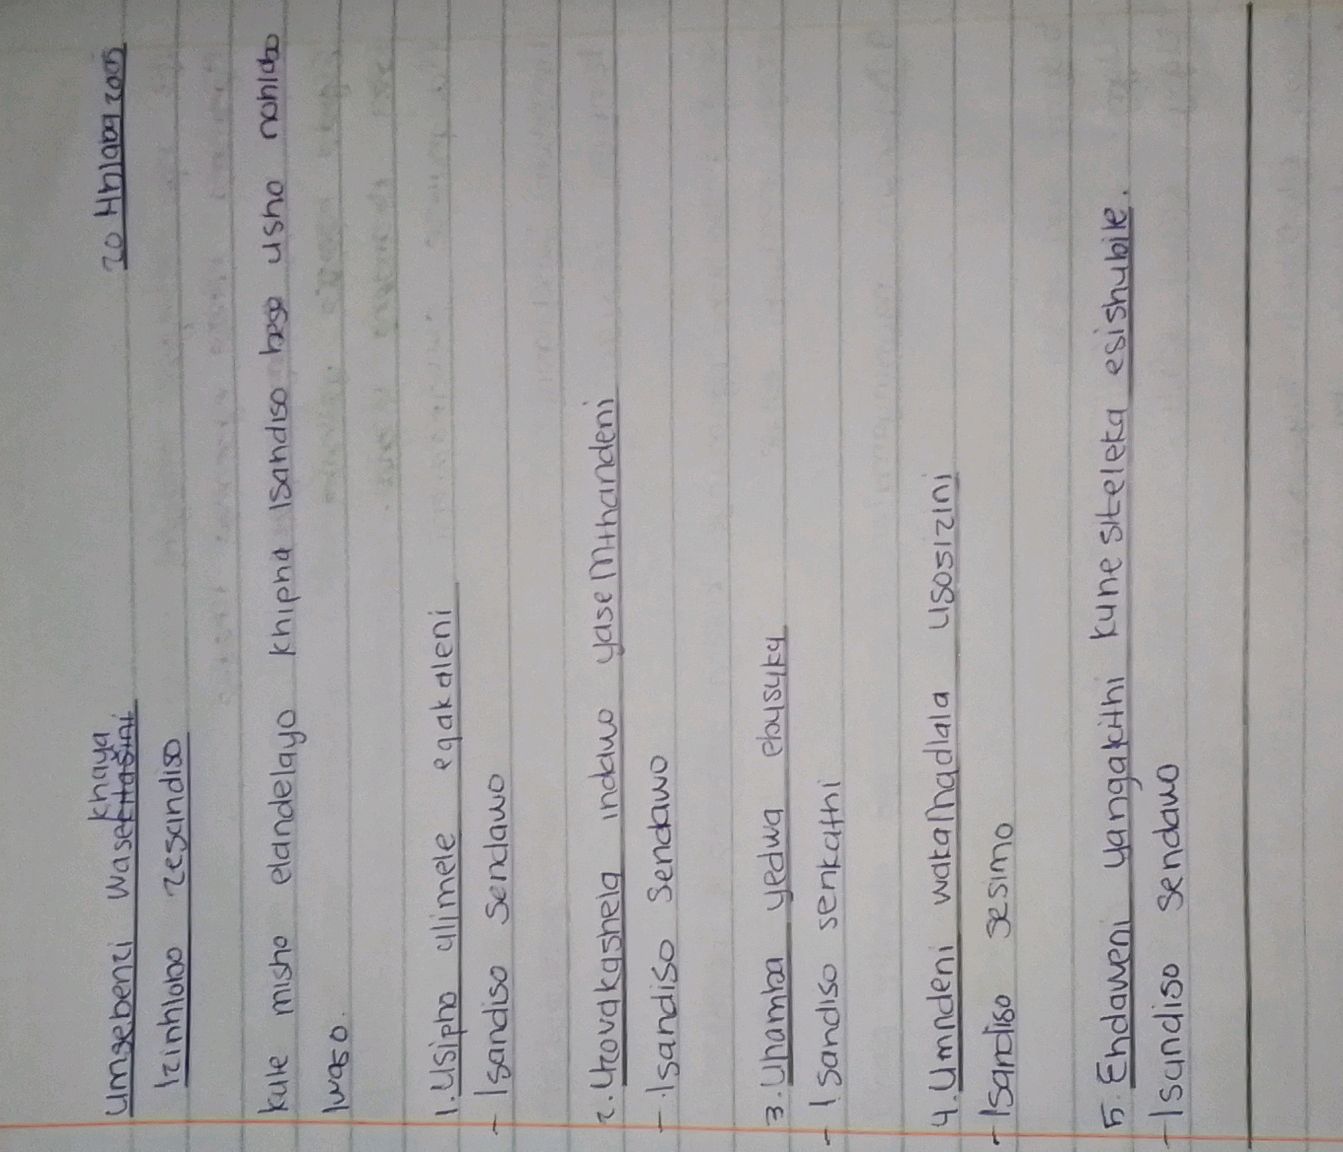 Umsebenzi wasekhaya 20 Nhlaba 2025
Izinhlobo zesandiso
Kule misho elandelayo khipha isandiso bese usho nohlobo
lwaso.
1. USipho ulimele eqakaleni
- Isandiso sendawo
2. Uzovakashela indawo yaseMthandeni
- Isandiso sendawo
3. Uhamba yedwa ebusuku
- Isandiso senkathi
4. Umndeni wakaMadlala usosizini
- Isandiso sesimo
5. Endaweni yangakithi kunesiteleka esishubile.
- Isandiso sendawo